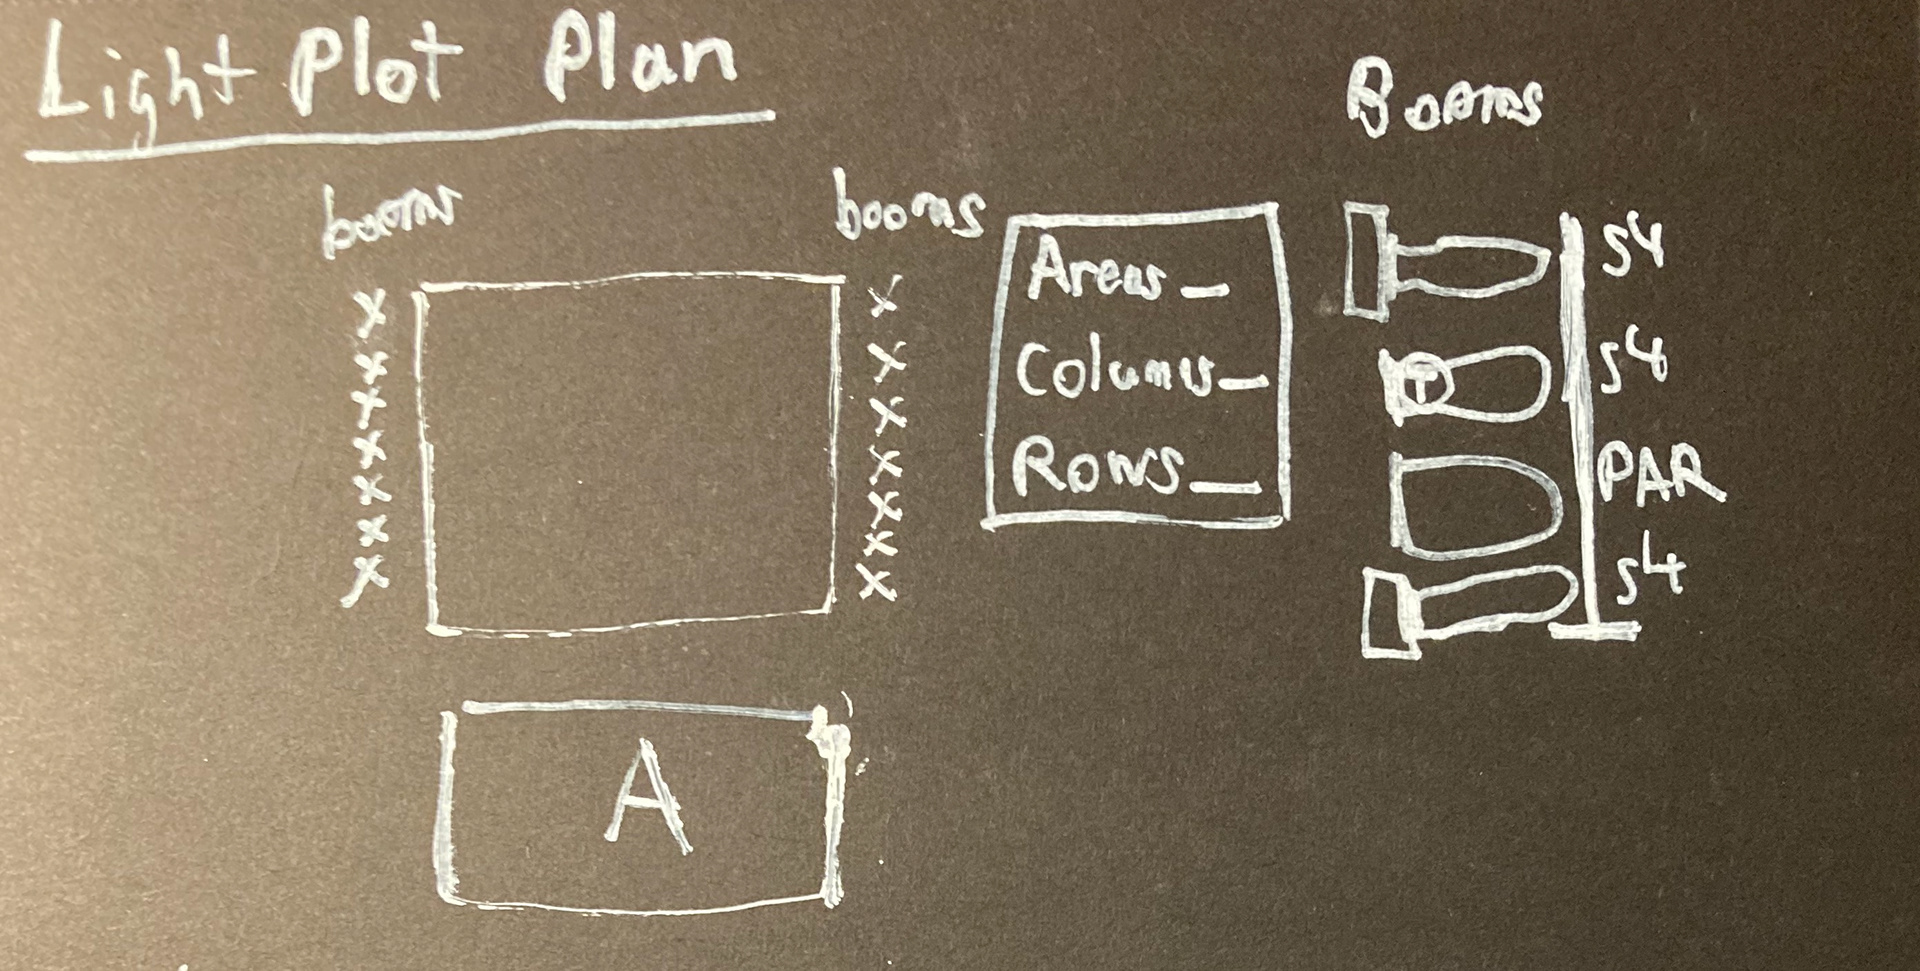 Light Plot Plan
Booms
booms
booms
x
x
x
x
x
x
x
x
x
x
x
x
x
x
Areas _
Columns _
Rows _
S4
S4
T
PAR
S4
A